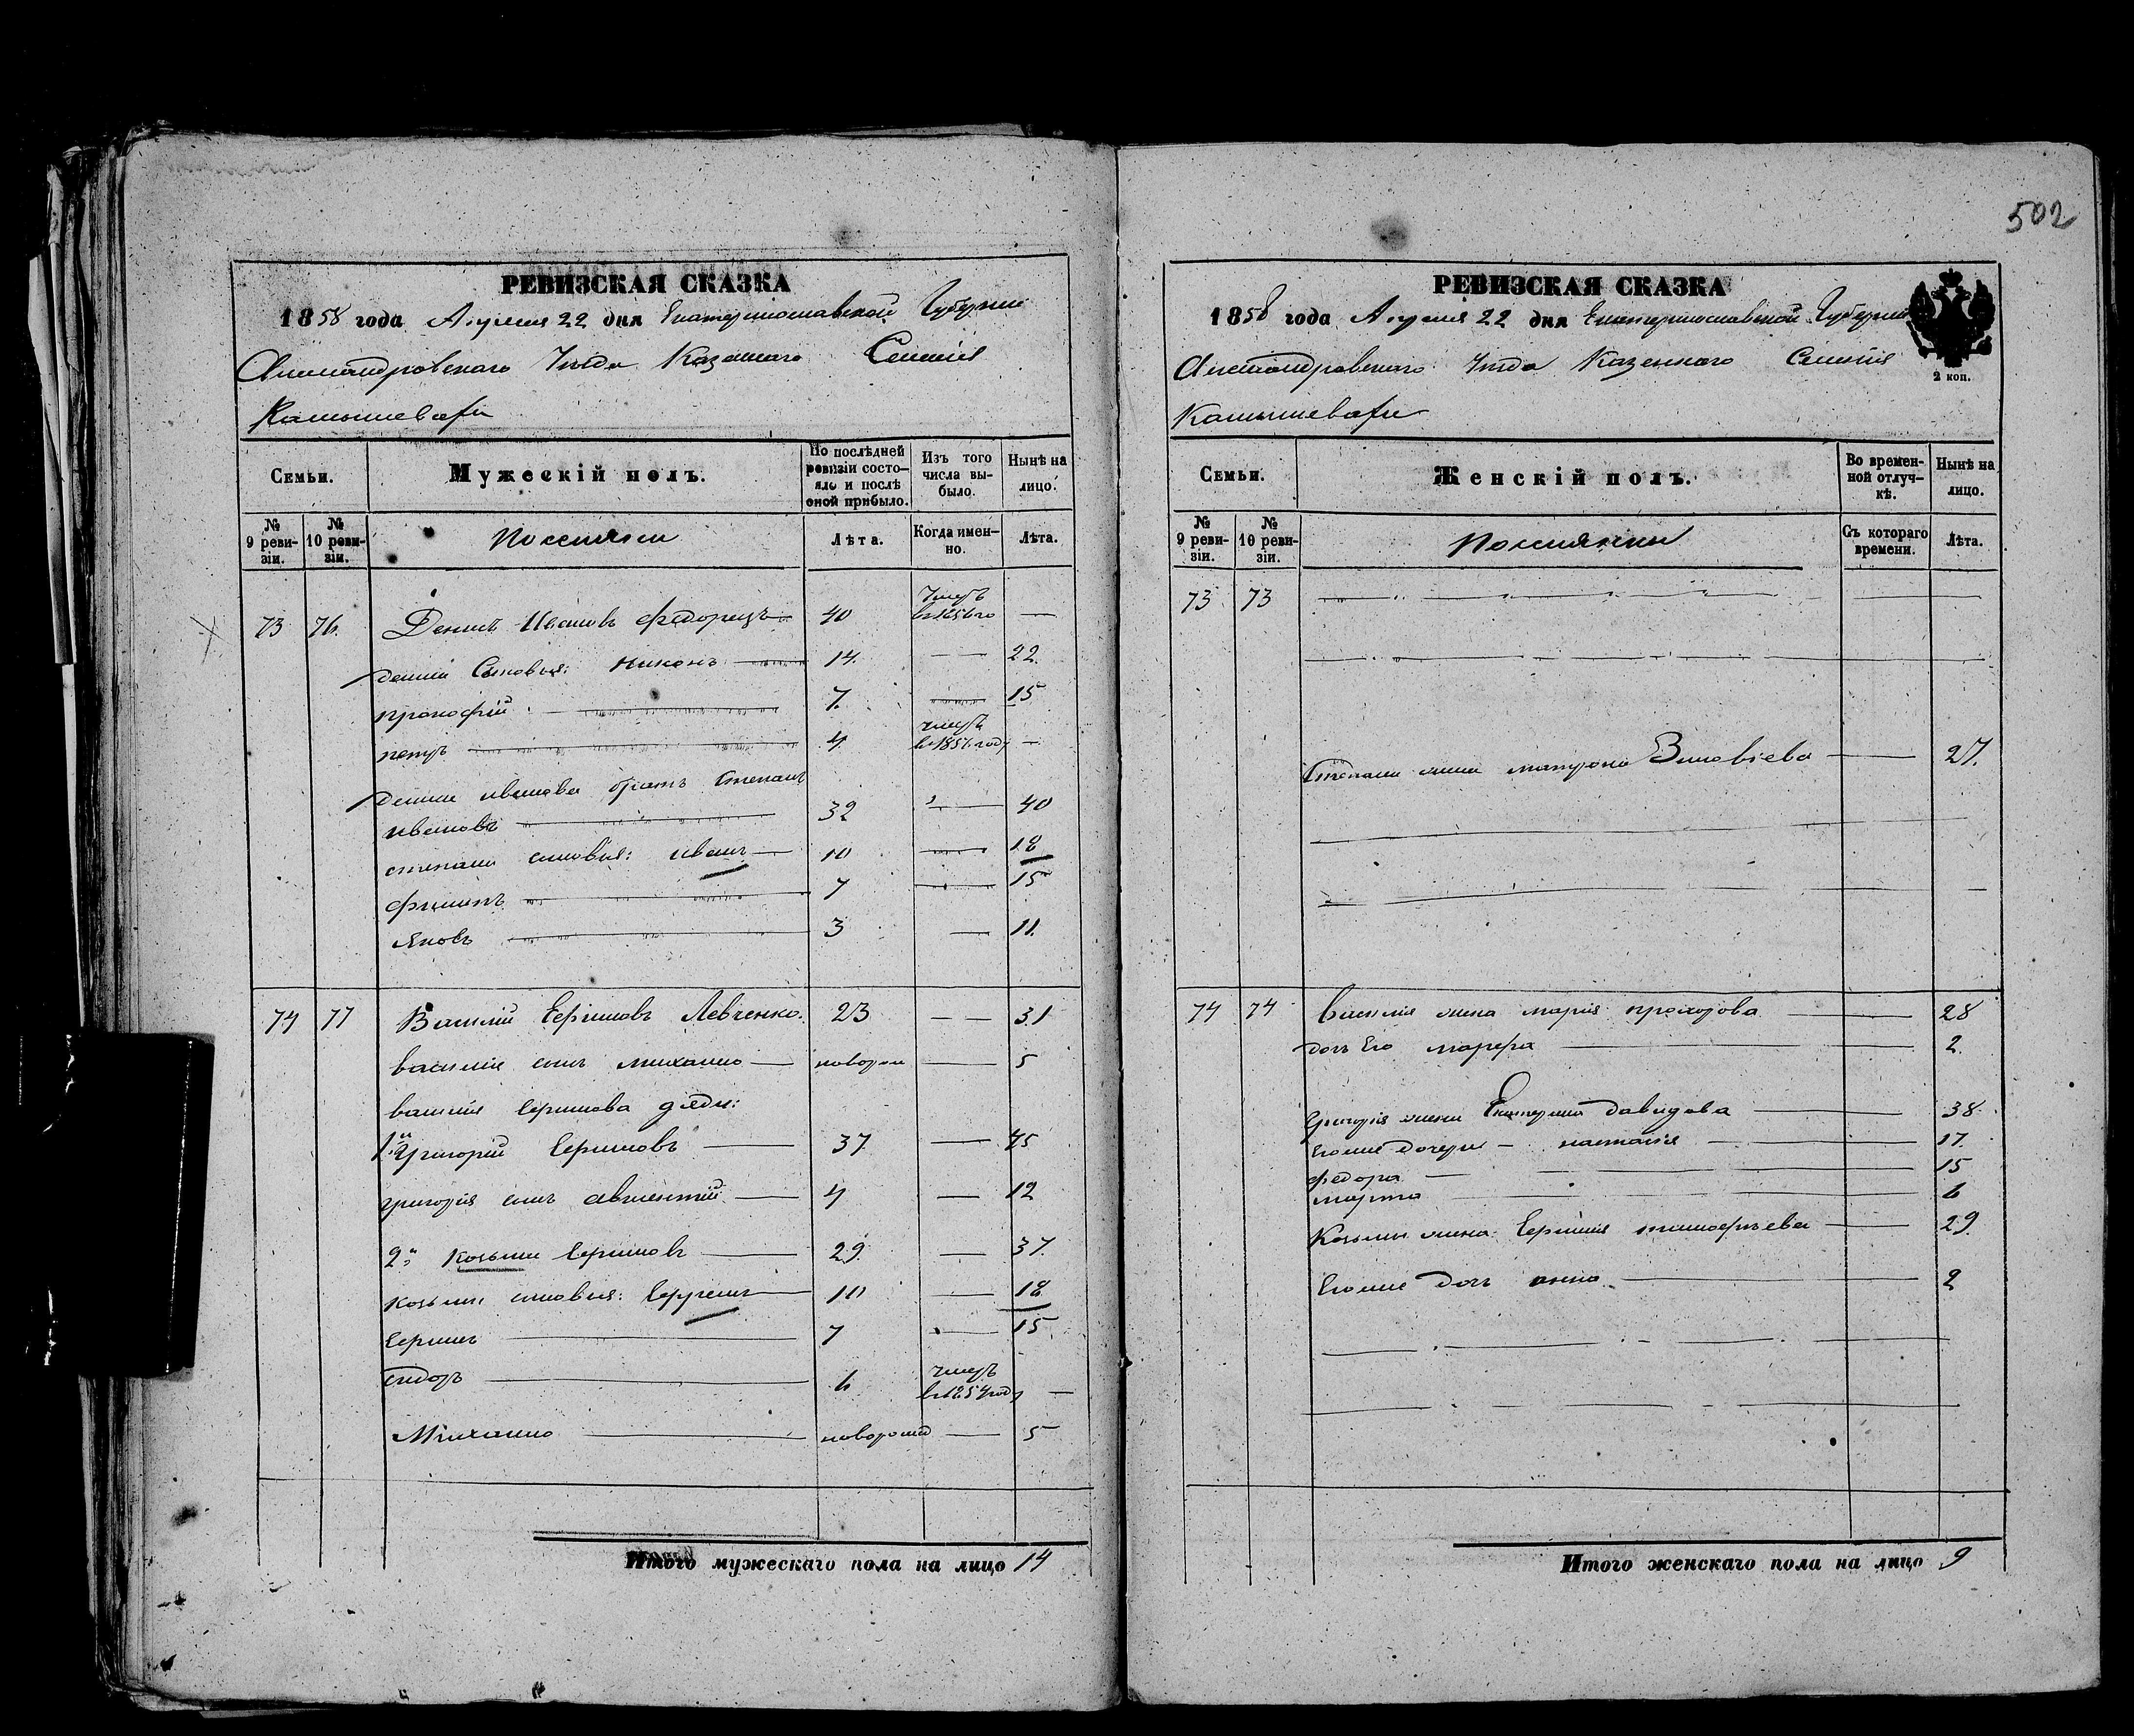 РЕВИЗСКАЯ СКАЗКА
1858 года Апреля 22 дня Екатеринославской Губернии
Александровского Уезда Казенного Селения
Камышевахи
Семьи.
Мужескій полъ.
По послѣдней ревизіи состояло и послѣ оной прибыло.
Изъ того числа выбыло.
Нынѣ на лицо.
№ 9 ревизіи.
№ 10 ревизіи.
Поселяне
Лѣта.
Когда именно.
Лѣта.
73 76. Денисъ Ивановъ 40 Умеръ в 1856 го —
Дениса Сыновья: Никонъ 14. — 22.
прокофій 7. — 15
петръ 4. умеръ в 1857 году —
Дениса иванова братъ степанъ
ивановъ 32 — 40
степана сыновья: иванъ 10 — 18
филипъ 7 — 15
яковъ 3 — 11.
74 77 Василий Ефимовъ Левченко. 23 — — 31
василія сынъ михаило новорож — 5
василія ефимова дяди:
1й Григорій Ефимовъ 37. — 45
григорія сынъ авксентій 4 — 12
2й Козьма Ефимовъ 29. — 37.
козьмы сыновья: Ефремъ 10 — 18
Ефимъ 7 — 15
сидоръ 6. умеръ в 1854 году —
Михаило новорожд — 5
Итого мужескаго пола на лицо 14
502
РЕВИЗСКАЯ СКАЗКА
1858 года Апреля 22 дня Екатеринославской Губернии
Александровского Уезда Казенного Селения
2 коп.
Камышевахи
Семьи.
Женскій полъ.
Во временной отлучкѣ.
Нынѣ на лицо.
№ 9 ревизіи.
№ 10 ревизіи.
Поселянки
Съ котораго времени.
Лѣта.
73 73
Степана жена матрона Зиновіева — 27.
74 74 Василія жена марія прохорова — 28
дочь Его марфа — 2.
Григорія жена Екатерина давидова — 38.
Егоже дочери — настасія — 17.
федора — 15
марта — 6
Козьмы жена Ефимія тимофеева — 29.
Егоже дочь анна — 2
Итого женскаго пола на лицо 9